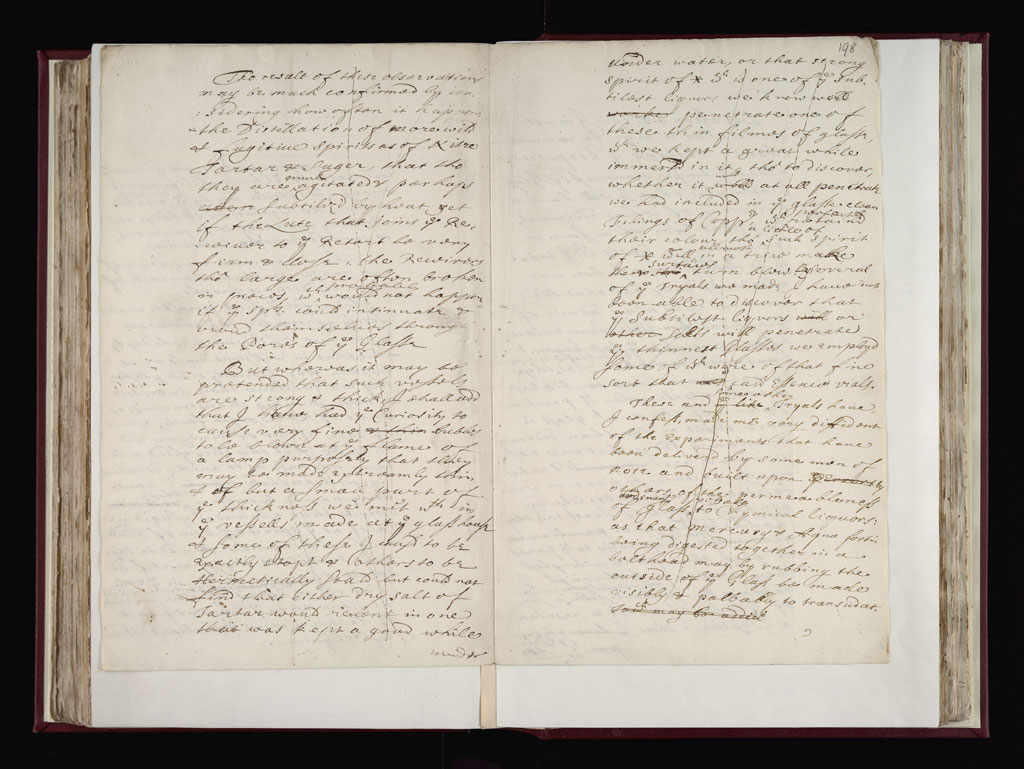 The result of these observations
may be much confirmed by con-
:sidering how often it happens
the Distillation of more wild
& fugitive spirits as of Nitre
Tartar & Sugar, that tho
they are much agitated & perhaps
Subtiliz'd by heat, yet
if the Lute that joins ye Re-
ceiver to ye Retort be very
firm & close, the Receivers
tho large are often broken
in pieces, wch probably would not happen
if ye spts could insinuate &
wind themselves through
the Pores of ye Glasse
But whereas it may be
pretended that such vessels
are strong & thick, I shall add
that I have had ye Curiosity to
cause very fine & thin Bubles
to be blown at ye flame of
a lamp purposely that they
may be made extreamly thin
& of but a small part of
ye thickness we mett wth in
ye vessells made at ye glasshouse
& some of these I caus'd to be
exactly stopt & others to be
Hermetically Seal'd but could not
find that either dry salt of
Tartar would relent in one
that was kept a good while
under
198
under water, or that strong
spirit of wch is one of ye sub-
tilest liquors we know would
worked penetrate one of
these thin filmes of glasse,
wch we kept a great while
immers'd in it, & tho to discover,
whether it would at all penetrate
we had included in ye glasse clean
filings of Copper, wch retain'd
their colour, tho a little of such Spirit
of will allmost in a trice make
their surfaces turn blew, & several
of ye Tryals we made I have not
been able to discover that
ye Subtilest liquors will or
other Salts will penetrate
ye thinnest Glasses we employd
some of wch were of that fine
sort that call'd Essence vials.
These and some other ye like Tryals have
I confess, made me very diffident
of the Experiments that have
been deliver'd by some men of
note and built upon by
others of the permeableness
of glass to Chymical liquors:
as that Mercury & Aqua fortis
being digested together in a
bolthead may by rubbing the
outside of ye Glass be made
visibly & palpably to transudat
may be added